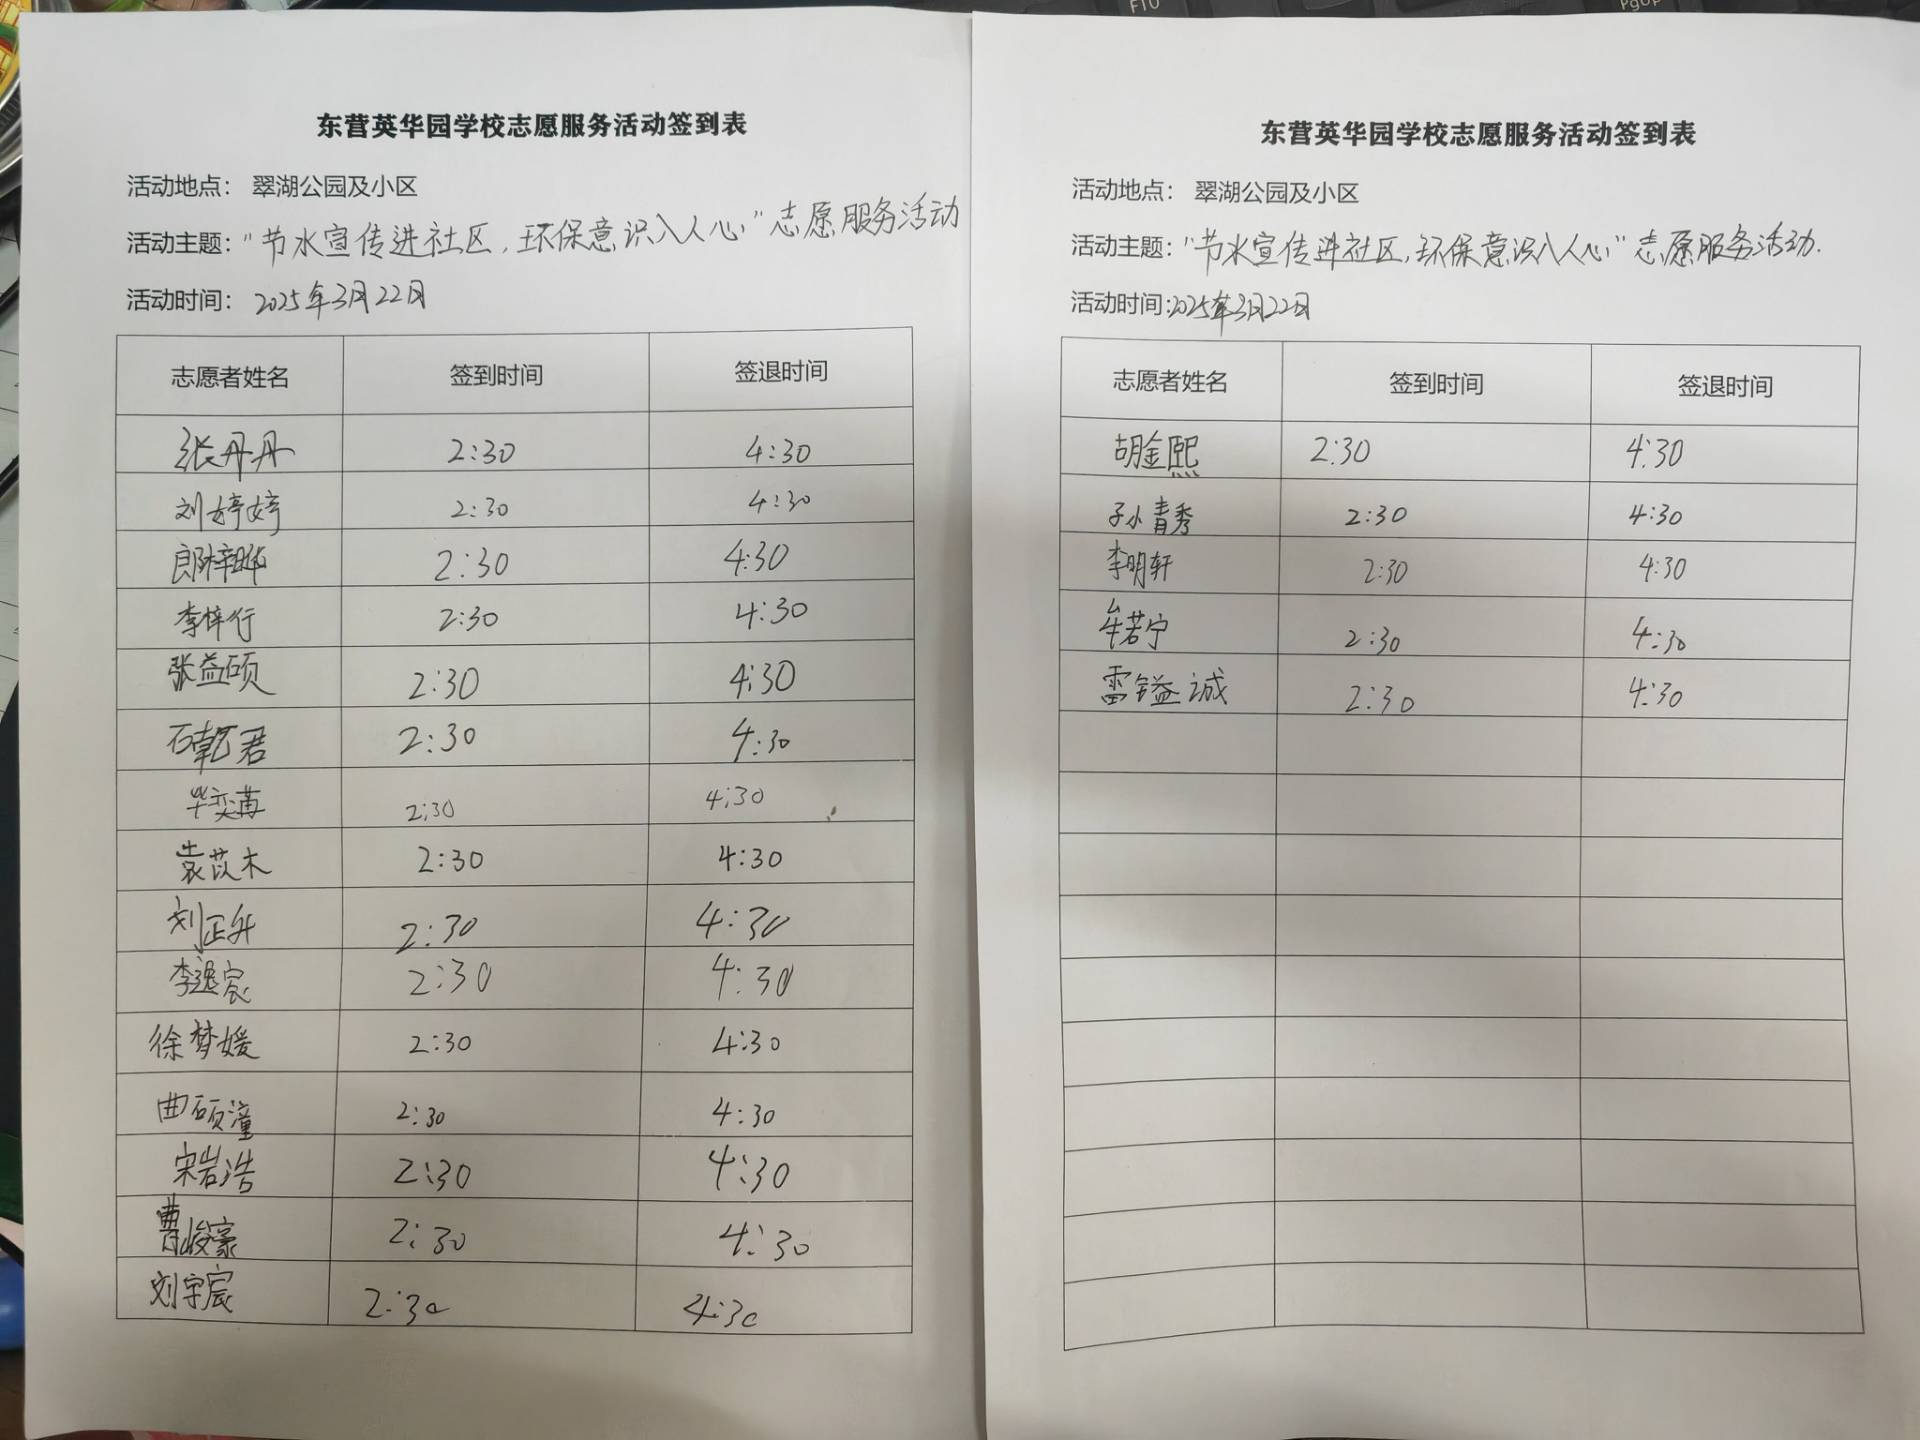 东营英华园学校志愿服务活动签到表
活动地点： 翠湖公园及小区
活动主题："节水宣传进社区，环保意识入人心"志愿服务活动
活动时间： 2025年3月22日
志愿者姓名 签到时间 签退时间
张丹丹 2:30 4:30
刘婷婷 2:30 4:30
郎梓晔 2:30 4:30
李梓行 2:30 4:30
张益硕 2:30 4:30
石乾君 2:30 4:30
毕奕 2:30 4:30
袁苡木 2:30 4:30
刘正升 2:30 4:30
李逸宸 2:30 4:30
徐梦媛 2:30 4:30
曲硕潼 2:30 4:30
宋岩浩 2:30 4:30
曹峻豪 2:30 4:30
刘宇宸 2:30 4:30
东营英华园学校志愿服务活动签到表
活动地点： 翠湖公园及小区
活动主题："节水宣传进社区,环保意识入人心"志愿服务活动.
活动时间:2025年3月22日
志愿者姓名 签到时间 签退时间
胡金熙 2:30 4:30
孙青秀 2:30 4:30
李明轩 2:30 4:30
牟若宁 2:30 4:30
雷镒诚 2:30 4:30
F10
PgUp